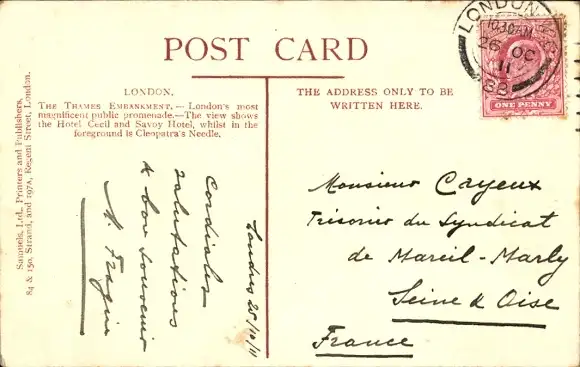 POST CARD
LONDON.
THE THAMES EMBANKMENT. — London's most
magnificent public promenade.—The view shows
the Hotel Cecil and Savoy Hotel, whilst in the
foreground is Cleopatra's Needle.
THE ADDRESS ONLY TO BE
WRITTEN HERE.
Samuels, Ltd., Printers and Publishers,
84 & 150, Strand, and 197A, Regent Street, London.
LONDON
10.30AM
26 OC
11
ONE PENNY
Londres 25/10/11
Cordiales
salutations
& bon souvenir
Monsieur Cayeux
Trésorier du Syndicat
de Mareil-Marly
Seine & Oise
France